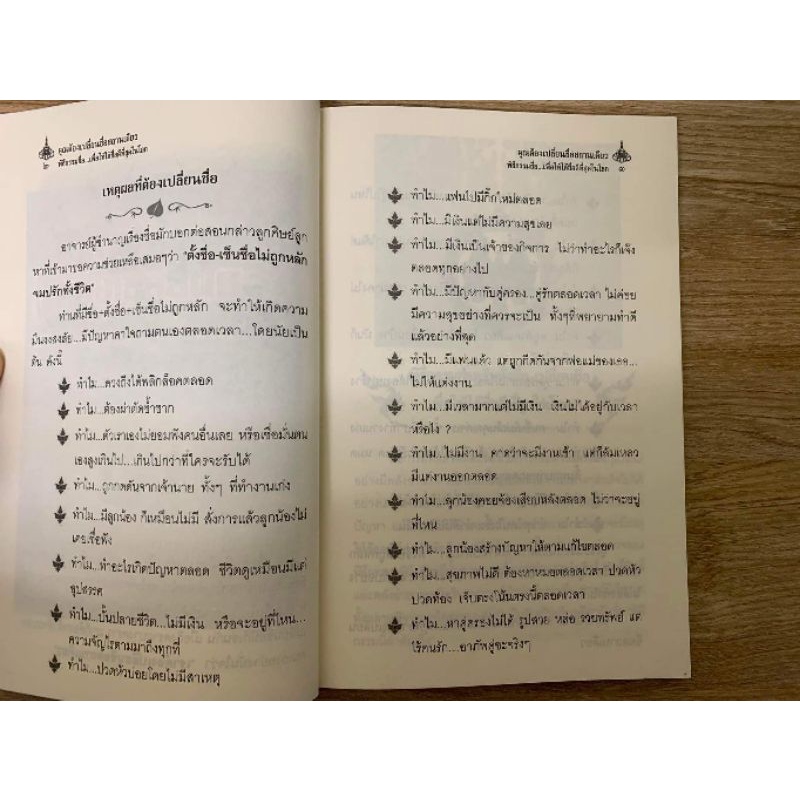 คุณต้องเปลี่ยนชื่อสถานเดียว
พิธีกรรมชื่อ..เพื่อให้ได้ชื่อดีที่สุดในโลก
๒
เหตุผลที่ต้องเปลี่ยนชื่อ
อาจารย์ผู้ชำนาญเรื่องชื่อมักบอกต่อสอนกล่าวลูกศิษย์ลูก
หาที่เข้ามาขอความช่วยเหลือเสมอๆว่า "ตั้งชื่อ-เซ็นชื่อไม่ถูกหลัก
จมปรักทั้งชีวิต"
ท่านที่มีชื่อ+ตั้งชื่อ+เซ็นชื่อไม่ถูกหลัก จะทำให้เกิดความ
มึนงงสงสัย...มีปัญหาคาใจถามตนเองตลอดเวลา...โดยนัยเป็น
ต้น ดังนี้
ทำไม...ดวงถึงได้พลิกล็อคตลอด
ทำไม...ต้องผ่าตัดซ้ำซาก
ทำไม...ตัวเราเองไม่ยอมฟังคนอื่นเลย หรือเชื่อมั่นตน
เองสูงเกินไป...เกินไปกว่าที่ใครจะรับได้
ทำไม...ถูกกดดันจากเจ้านาย ทั้งๆ ที่ทำงานเก่ง
ทำไม...มีลูกน้อง ก็เหมือนไม่มี สั่งการแล้วลูกน้องไม่
เคยเชื่อฟัง
ทำไม...ทำอะไรเกิดปัญหาตลอด ชีวิตดูเหมือนมีแต่
อุปสรรค
ทำไม...บั้นปลายชีวิต...ไม่มีเงิน หรือจะอยู่ที่ไหน...
ความจัญไรตามมาถึงทุกที่
ทำไม...ปวดหัวบ่อยโดยไม่มีสาเหตุ
คุณต้องเปลี่ยนชื่อสถานเดียว
พิธีกรรมชื่อ..เพื่อให้ได้ชื่อดีที่สุดในโลก
๓
ทำไม...แฟนไปมีกิ๊กใหม่ตลอด
ทำไม...มีเงินแต่ไม่มีความสุขเลย
ทำไม...มีเงินเป็นเจ้าของกิจการ ไม่ว่าทำอะไรก็เจ๊ง
ตลอดทุกอย่างไป
ทำไม...มีปัญหากับคู่ครอง...คู่รักตลอดเวลา ไม่ค่อย
มีความสุขอย่างที่ควรจะเป็น ทั้งๆที่พยายามทำดี
แล้วอย่างที่สุด
ทำไม...มีแฟนแล้ว แต่ถูกกีดกันจากพ่อแม่ของเธอ...
ไม่ให้แต่งงาน
ทำไม...มีเวลามากแต่ไม่มีเงิน เงินไม่ได้อยู่กับเวลา
หรือไง ?
ทำไม...ไม่มีงาน คาดว่าจะมีงานเข้า แต่ก็ล้มเหลว
มีแต่งานออกตลอด
ทำไม...ลูกน้องคอยจ้องเสียบหลังตลอด ไม่ว่าจะอยู่
ที่ไหน
ทำไม...ลูกน้องสร้างปัญหาให้ตามแก้ไขตลอด
ทำไม...สุขภาพไม่ดี ต้องหาหมอตลอดเวลา ปวดหัว
ปวดท้อง เจ็บตรงโน้นตรงนี้ตลอดเวลา
ทำไม...หาคู่ครองไม่ได้ รูปสวย หล่อ รวยทรัพย์ แต่
ไร้คนรัก...อาภัพคู่ซะจริงๆ